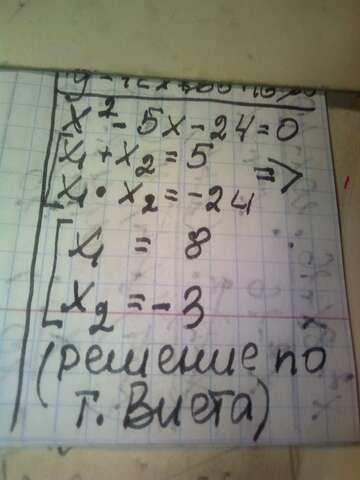 x² - 5x - 24 = 0
x₁ + x₂ = 5
x₁ • x₂ = -24 =>
x₁ = 8
x₂ = -3
(решение по
т. Виета)